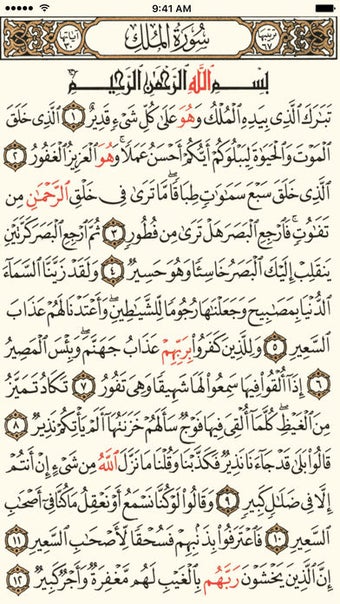 9:41 AM
ترتيبها ٦٧ سورة الملك آياتها ٣٠
بِسْمِ ٱللَّهِ ٱلرَّحْمَٰنِ ٱلرَّحِيمِ
تَبَٰرَكَ ٱلَّذِى بِيَدِهِ ٱلْمُلْكُ وَهُوَ عَلَىٰ كُلِّ شَىْءٍ قَدِيرٌ ١ ٱلَّذِى خَلَقَ
ٱلْمَوْتَ وَٱلْحَيَوٰةَ لِيَبْلُوَكُمْ أَيُّكُمْ أَحْسَنُ عَمَلًا ۚ وَهُوَ ٱلْعَزِيزُ ٱلْغَفُورُ ٢
ٱلَّذِى خَلَقَ سَبْعَ سَمَٰوَٰتٍ طِبَاقًا ۖ مَّا تَرَىٰ فِى خَلْقِ ٱلرَّحْمَٰنِ مِن
تَفَٰوُتٍ ۖ فَٱرْجِعِ ٱلْبَصَرَ هَلْ تَرَىٰ مِن فُطُورٍ ٣ ثُمَّ ٱرْجِعِ ٱلْبَصَرَ كَرَّتَيْنِ
يَنقَلِبْ إِلَيْكَ ٱلْبَصَرُ خَاسِئًا وَهُوَ حَسِيرٌ ٤ وَلَقَدْ زَيَّنَّا ٱلسَّمَآءَ
ٱلدُّنْيَا بِمَصَٰبِيحَ وَجَعَلْنَٰهَا رُجُومًا لِّلشَّيَٰطِينِ ۖ وَأَعْتَدْنَا لَهُمْ عَذَابَ
ٱلسَّعِيرِ ٥ وَلِلَّذِينَ كَفَرُوا۟ بِرَبِّهِمْ عَذَابُ جَهَنَّمَ ۖ وَبِئْسَ ٱلْمَصِيرُ
٦ إِذَآ أُلْقُوا۟ فِيهَا سَمِعُوا۟ لَهَا شَهِيقًا وَهِىَ تَفُورُ ٧ تَكَادُ تَمَيَّزُ
مِنَ ٱلْغَيْظِ ۖ كُلَّمَآ أُلْقِىَ فِيهَا فَوْجٌ سَأَلَهُمْ خَزَنَتُهَآ أَلَمْ يَأْتِكُمْ نَذِيرٌ ٨
قَالُوا۟ بَلَىٰ قَدْ جَآءَنَا نَذِيرٌ فَكَذَّبْنَا وَقُلْنَا مَا نَزَّلَ ٱللَّهُ مِن شَىْءٍ إِنْ أَنتُمْ
إِلَّا فِى ضَلَٰلٍ كَبِيرٍ ٩ وَقَالُوا۟ لَوْ كُنَّا نَسْمَعُ أَوْ نَعْقِلُ مَا كُنَّا فِىٓ أَصْحَٰبِ
ٱلسَّعِيرِ ١٠ فَٱعْتَرَفُوا۟ بِذَنۢبِهِمْ فَسُحْقًا لِّأَصْحَٰبِ ٱلسَّعِيرِ ١١
إِنَّ ٱلَّذِينَ يَخْشَوْنَ رَبَّهُم بِٱلْغَيْبِ لَهُم مَّغْفِرَةٌ وَأَجْرٌ كَبِيرٌ ١٢